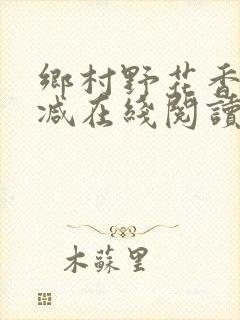 鄉村野花香
减在綫閱讀
木蘇里